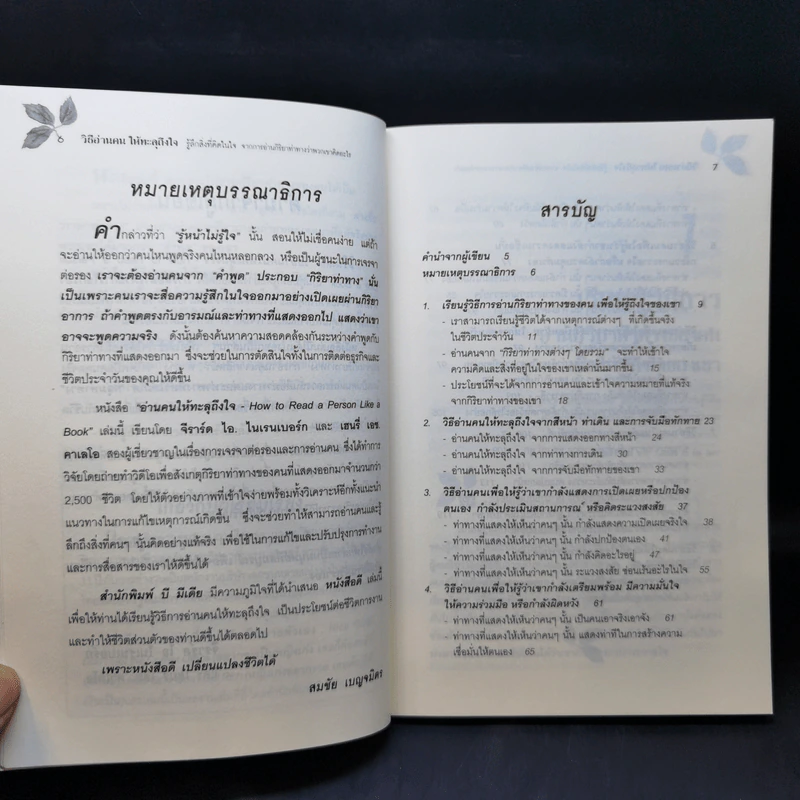 ๖ วิธีอ่านคน ให้ทะลุถึงใจ รู้ลึกสิ่งที่คิดในใจ จากการอ่านกิริยาท่าทางว่าพวกเขาคิดอะไร
หมายเหตุบรรณาธิการ
คำกล่าวที่ว่า "รู้หน้าไม่รู้ใจ" นั้น สอนให้ไม่เชื่อคนง่าย แต่ถ้า
จะอ่านให้ออกว่าคนไหนพูดจริงคนไหนหลอกลวง หรือเป็นผู้ชนะในการเจรจา
ต่อรอง เราจะต้องอ่านคนจาก "คำพูด" ประกอบ "กิริยาท่าทาง" นั่น
เป็นเพราะคนเราจะสื่อความรู้สึกในใจออกมาอย่างเปิดเผยผ่านกิริยา
อาการ ถ้าคำพูดตรงกับอารมณ์และท่าทีที่แสดงออกไป แสดงว่าเขา
อาจจะพูดความจริง ดังนั้นต้องค้นหาความสอดคล้องกันระหว่างคำพูดกับ
กิริยาท่าทางที่แสดงออกมา ซึ่งจะช่วยในการตัดสินใจทั้งในการติดต่อธุรกิจและ
ชีวิตประจำวันของคุณให้ดีขึ้น
หนังสือ "อ่านคนให้ทะลุถึงใจ - How to Read a Person Like a
Book" เล่มนี้ เขียนโดย จีราร์ด ไอ. ไนเรนเบอร์ก และ เฮนรี่ เอช.
คาเลโอ สองผู้เชี่ยวชาญในเรื่องการเจรจาต่อรองและการอ่านคน ซึ่งได้ทำการ
วิจัยโดยถ่ายทำวิดีโอเพื่อสังเกตุกิริยาท่าทางของคนที่แสดงออกมาจำนวนกว่า
2,500 ชีวิต โดยให้ตัวอย่างภาพที่เข้าใจง่ายพร้อมทั้งวิเคราะห์อีกทั้งแนะนำ
แนวทางในการแก้ไขเหตุการณ์เกิดขึ้น ซึ่งจะช่วยทำให้สามารถอ่านคนและรู้
ลึกถึงสิ่งที่คนๆ นั้นคิดอย่างแท้จริง เพื่อใช้ในการแก้ไขและปรับปรุงการทำงาน
และการสื่อสารของเราให้ดีขึ้นได้
สำนักพิมพ์ บี มีเดีย มีความภูมิใจที่ได้นำเสนอ หนังสือดี เล่มนี้
เพื่อให้ท่านได้เรียนรู้วิธีการอ่านคนให้ทะลุถึงใจ เป็นประโยชน์ต่อชีวิตการงาน
และทำให้ชีวิตส่วนตัวของท่านดีขึ้นได้ตลอดไป
เพราะหนังสือดี เปลี่ยนแปลงชีวิตได้
สมชัย เบญจมิตร
7
สารบัญ
คำนำจากผู้เขียน 5
หมายเหตุบรรณาธิการ 6
1. เรียนรู้วิธีการอ่านกิริยาท่าทางของคน เพื่อให้รู้ถึงใจของเขา 9
- เราสามารถเรียนรู้ชีวิตได้จากเหตุการณ์ต่างๆ ที่เกิดขึ้นจริง
ในชีวิตประจำวัน 11
- อ่านคนจาก "กิริยาท่าทางต่างๆ โดยรวม" จะทำให้เข้าใจ
ความคิดและสิ่งที่อยู่ในใจของเขาเหล่านั้นมากขึ้น 15
- ประโยชน์ที่จะได้จากการอ่านคนและเข้าใจความหมายที่แท้จริง
จากกิริยาท่าทางของเขา 18
2. วิธีอ่านคนให้ทะลุถึงใจจากสีหน้า ท่าเดิน และการจับมือทักทาย 23
- อ่านคนให้ทะลุถึงใจ จากการแสดงออกทางสีหน้า 24
- อ่านคนให้ทะลุถึงใจ จากท่าทางการเดิน 30
- อ่านคนให้ทะลุถึงใจ จากการจับมือทักทายของเขา 33
3. วิธีอ่านคนเพื่อให้รู้ว่าเขากำลังแสดงการเปิดเผยหรือปกป้อง
ตนเอง กำลังประเมินสถานการณ์ หรือคิดระแวงสงสัย 37
- ท่าทางที่แสดงให้เห็นว่าคนๆ นั้น กำลังแสดงความเปิดเผยจริงใจ 38
- ท่าทางที่แสดงให้เห็นว่าคนๆ นั้น กำลังปกป้องตนเอง 41
- ท่าทางที่แสดงให้เห็นว่าคนๆ นั้น กำลังคิดอะไรอยู่ 47
- ท่าทางที่แสดงให้เห็นว่าคนๆ นั้น ระแวงสงสัย ซ่อนเร้นอะไรในใจ 55
4. วิธีอ่านคนเพื่อให้รู้ว่าเขากำลังเตรียมพร้อม มีความมั่นใจ
ให้ความร่วมมือ หรือกำลังผิดหวัง 61
- ท่าทางที่แสดงให้เห็นว่าคนๆ นั้น เป็นคนเอาจริงเอาจัง 61
- ท่าทางที่แสดงให้เห็นว่าคนๆ นั้น แสดงท่าทีในการสร้างความ
เชื่อมั่นให้ตนเอง 65